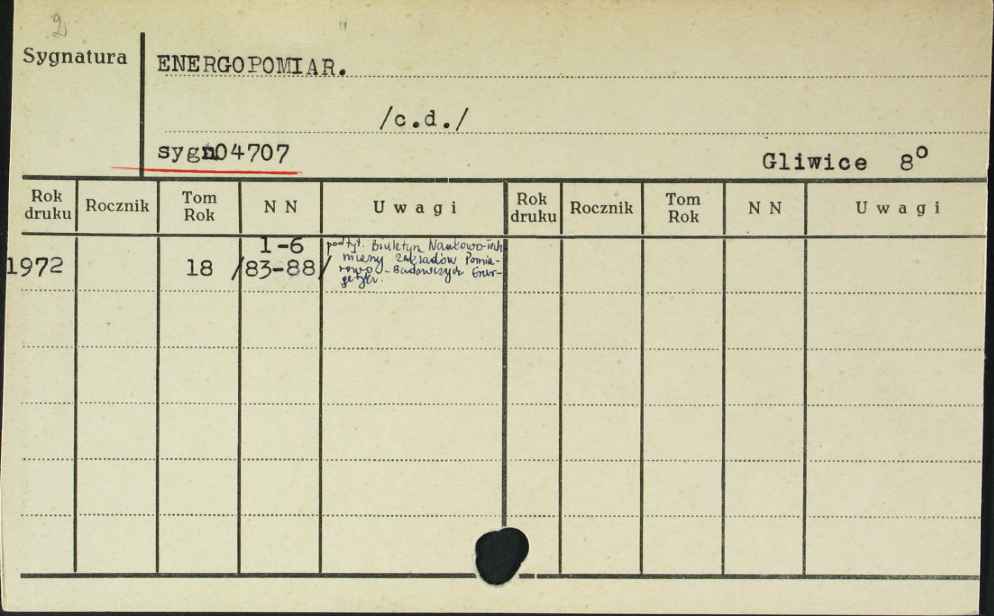 2
Sygnatura
ENERGOPOMIAR.
/c.d./
sygn04707
Gliwice 8°
Rok druku Rocznik Tom Rok N N Uwagi Rok druku Rocznik Tom Rok N N Uwagi
1-6
1972 18 /83-88/
podtyt. Biuletyn Naukowo-
Zakładów Pomia-
rowo-Badawczych Ener-
getyki.